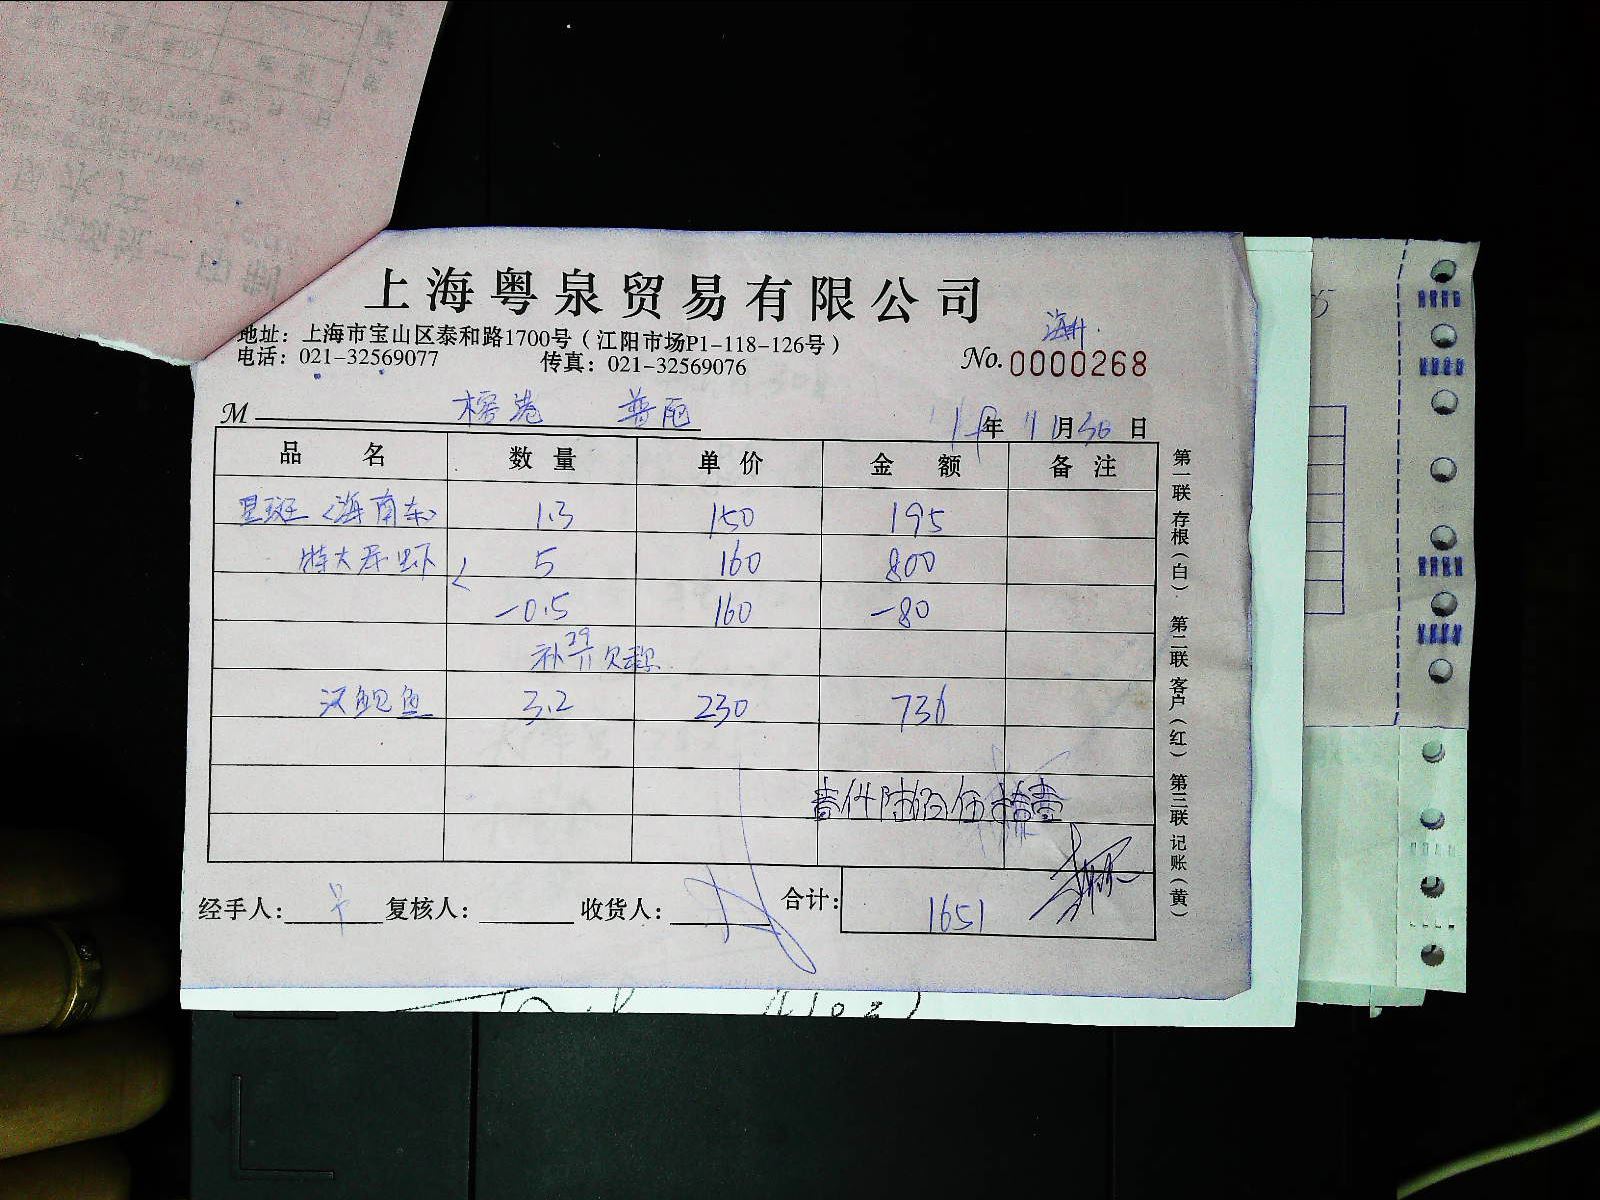 上海粤泉贸易有限公司
地址：上海市宝山区泰和路1700号（江阳市场P1-118-126号）
电话：021-32569077 传真：021-32569076
No.0000268
M
年 11月30日
品名 数量 单价 金额 备注
星斑〈海南东〉 1.3 150 195
特大 虾 5 160 800
-0.5 160 -80
补 29/11 欠称
汉鲍鱼 3.2 230 736
壹仟陆佰伍拾壹
经手人： 复核人： 收货人： 合计： 1651
第一联 存根（白） 第二联 客户（红） 第三联 记账（黄）